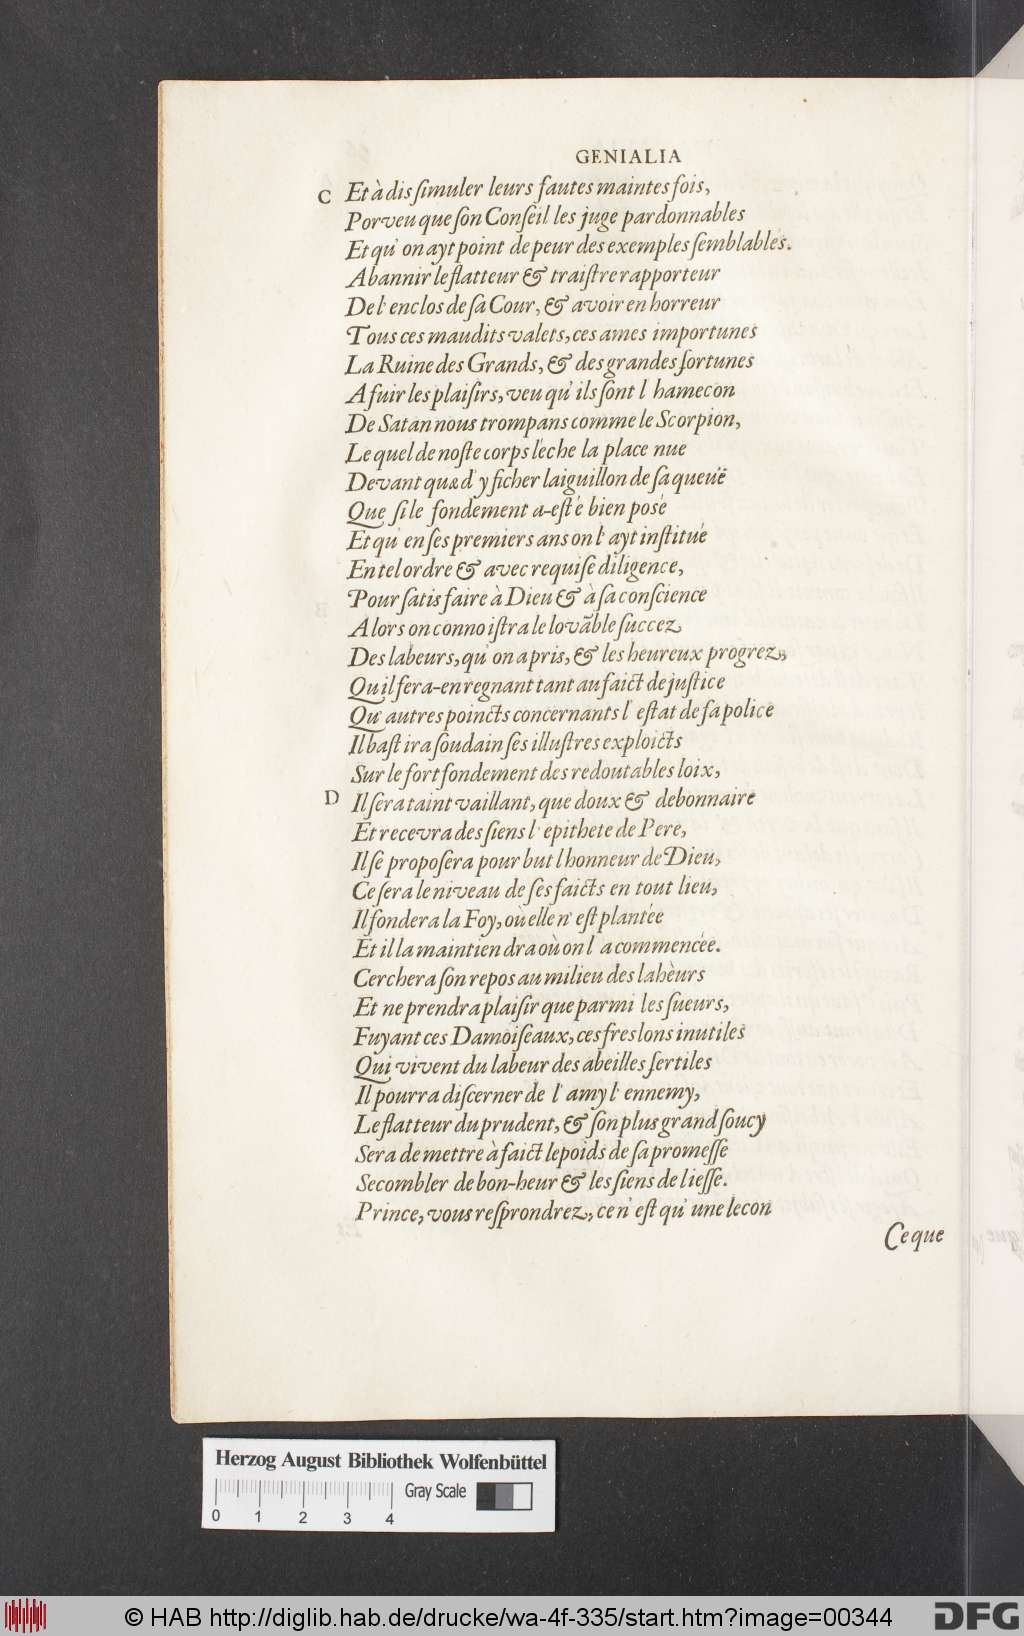 GENIALIA
C Et à dissimuler leurs fautes maintes fois,
Porveu que son Conseil les juge pardonnables
Et qu' on ayt point de peur des exemples semblables.
A bannir le flatteur & traistre rapporteur
De l' enclos de sa Cour, & avoir en horreur
Tous ces maudits valets, ces ames importunes
La Ruine des Grands, & des grandes fortunes
A fuir les plaisirs, veu qu' ils sont l hamecon
De Satan nous trompans comme le Scorpion,
Le quel de noste corps léche la place nue
Devant que d' y ficher laiguillon de sa queuë
Que si le fondement a-esté bien posé
Et qu' en ses premiers ans on l' ayt institué
En tel ordre & avec requise diligence,
Pour satisfaire à Dieu & à sa conscience
Alors on connoistra le lovãble succez
Des labeurs, qu' on a pris, & les heureux progrez,
Quil fera-en regnant tant au faict de justice
Qu' autres poincts concernants l' estat de sa police
Il bastira soudain ses illustres exploicts
Sur le fort fondement des redoutables loix,
D Il sera taint vaillant, que doux & debonnaire
Et recevra des siens l' epithete de Pere,
Il se proposera pour but lhonneur de Dieu,
Ce sera le niveau de ses faicts en tout lieu,
Il fondera la Foy, où elle n' est plantée
Et il la maintiendra où on l' a commencée.
Cerchera son repos au milieu des labèurs
Et ne prendra plaisir que parmi les sueurs,
Fuyant ces Damoiseaux, ces freslons inutiles
Qui vivent du labeur des abeilles fertiles
Il pourra discerner de l' amy l' ennemy,
Le flatteur du prudent, & son plus grand soucy
Sera de mettre à faict le poids de sa promesse
Se combler de bon-heur & les siens de liesse.
Prince, vous resprondrez, ce n' est qu' une lecon
Ce que
Herzog August Bibliothek Wolfenbüttel
Gray Scale
0 1 2 3 4
© HAB http://diglib.hab.de/drucke/wa-4f-335/start.htm?image=00344
DFG